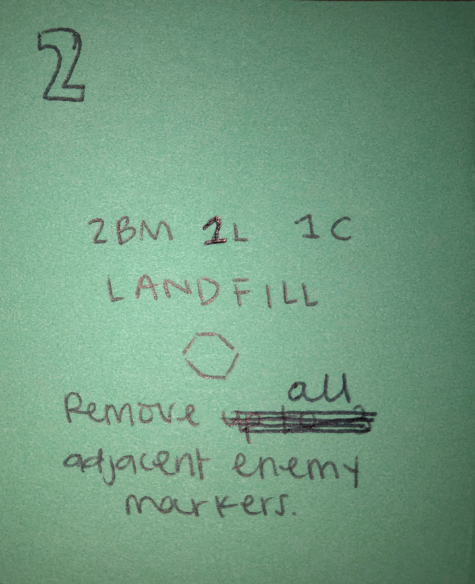 2
2BM 1L 1C
LANDFILL
Remove all
adjacent enemy
markers.